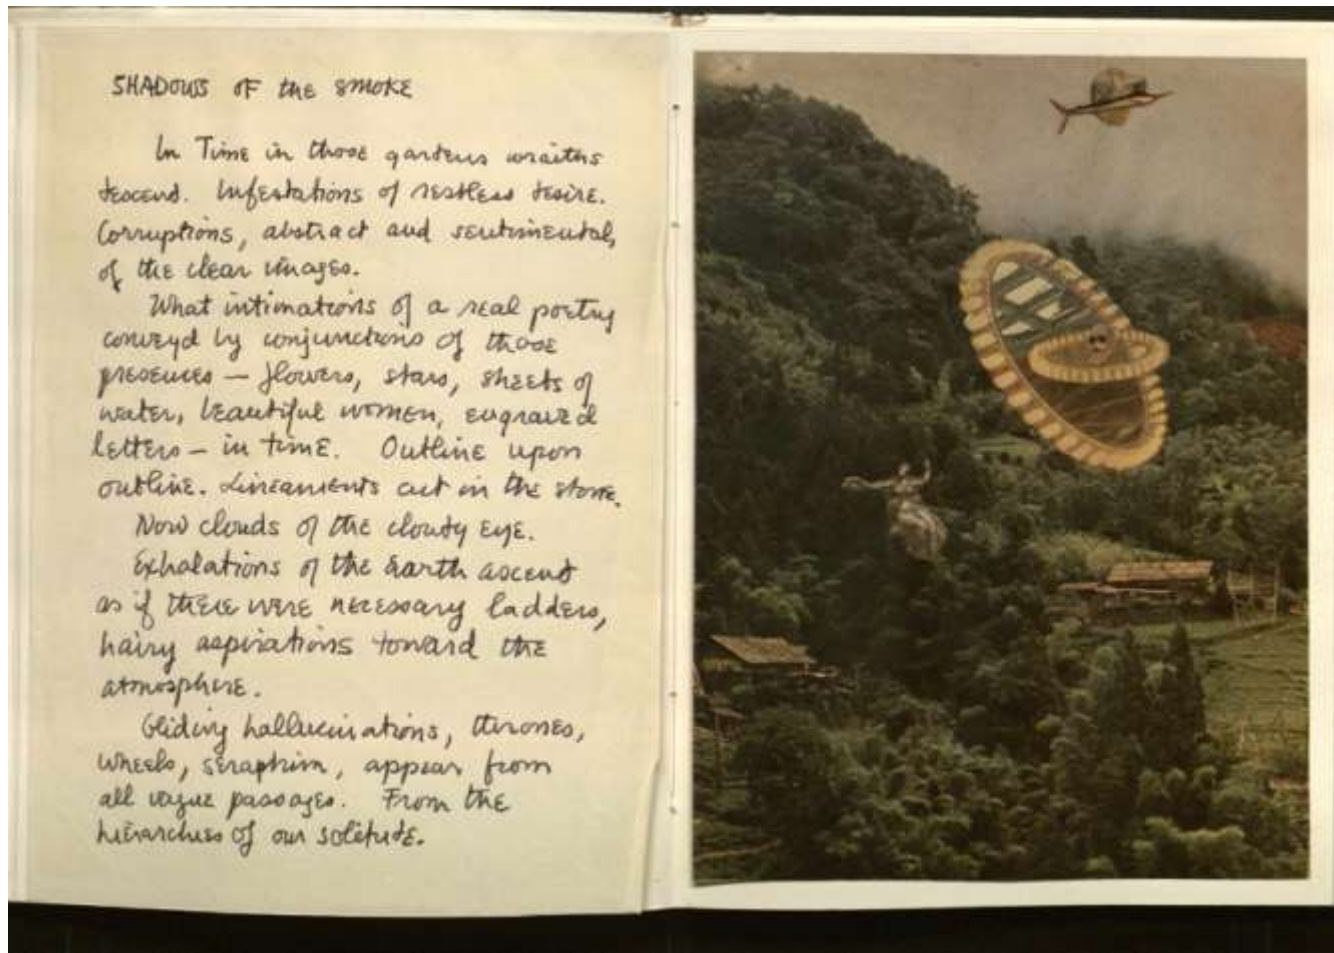 SHADOWS OF the SMOKE
In Time in those gardens wraiths
descend. Infestations of restless desire.
Corruptions, abstract and sentimental,
of the clear images.
What intimations of a real poetry
conveyd by conjunctions of those
presences — flowers, stars, sheets of
water, beautiful women, engraved
letters — in time. Outline upon
outline. Lineaments cut in the stone.
Now clouds of the cloudy eye.
Exhalations of the Earth ascend
as if there were necessary ladders,
hairy aspirations toward the
atmosphere.
Gliding hallucinations, thrones,
wheels, seraphim, appear from
all vague passages. From the
hierarchies of our solitude.